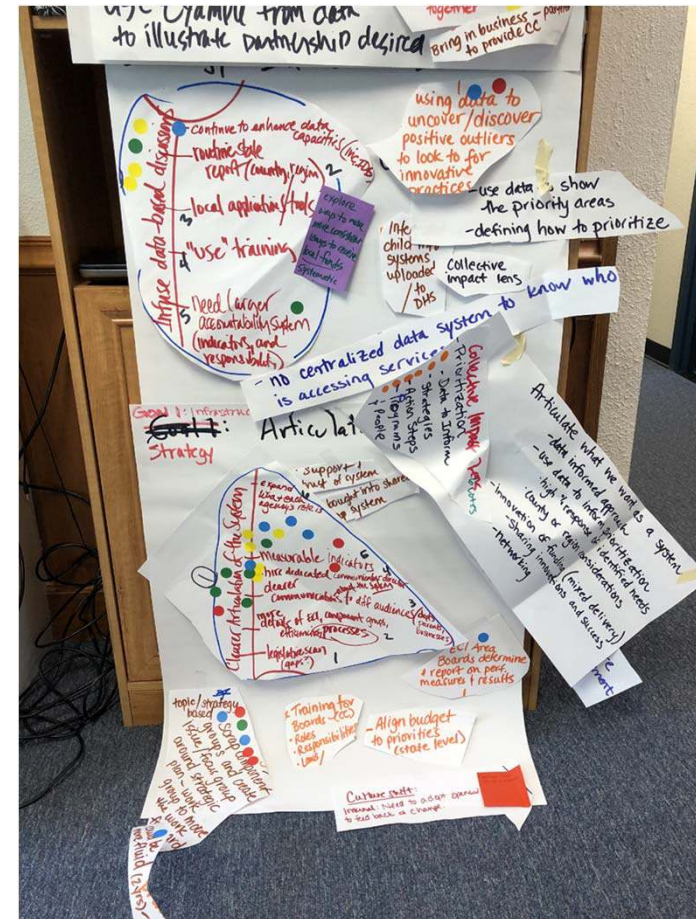 use example from data
to illustrate partnership desired
together
Bring in business -
to provide CC
Infuse data-based discussions
continue to enhance data
capacities
routine state
report (county, region) 2
3 local application/tools
4 "use" training
5 Need larger
accountability system
(indicators and
responsibility)
explore
ways to make
more consistent
ways to receive
local funds
systematic
using data to
uncover/discover
positive outliers
to look to for
innovative
practices
- use data to show
the priority areas
- defining how to prioritize
child info
systems
uploader
to DHS
Collective
impact lens
- no centralized data system to know who
is accessing services
Collective Impact Lens
- Prioritization
- Data to Inform
- Strategies
- Action Steps
- Programs
- People
Articulate what we want as a system
- data informed approach
- use data to inform prioritization
high response of identified needs
county or region considerations
- innovation of funding (mixed delivery)
- sharing innovations and success
- networking
Goal 1: Infrastruc
Goal 1:
Strategy
Articulat
Clearer Articulation of the System
1
agency's role is
measurable indicators 6
hire dedicated communication director 4
clearer
communication to diff audiences 3
parents
businesses
more
details of ECI, component groups,
processes 2
legislative scan
(gaps?) 1
support &
trust of system
bought into shared
system
ECI Area
Boards determine
& report on perf.
measures & results
topic/strategy
based
scrap component
groups and create
issue/focus group
around strategic
plan - work
group to move
the work
fluid (2 yrs)
- Training for
Boards (CC)
- Roles
- Responsibilities
- Laws
- Align budget
to priorities
(state level)
Culture shift:
Need to adapt
to feedback & change